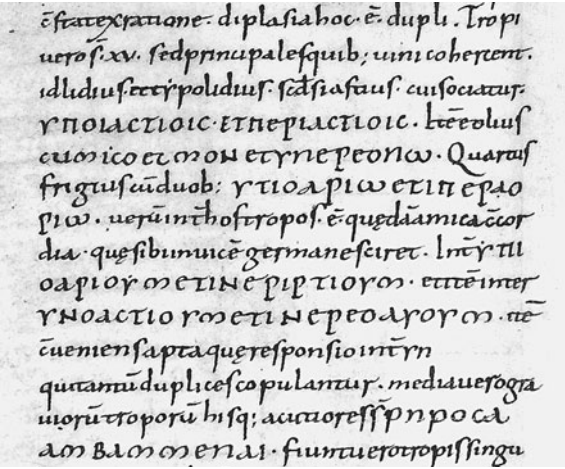 c̄stat ex ratione· diplasia hoc· ē· dupli. Tropi
uero s̄· xv· sed principales quib; uini coherent.
id lidius et ypolidius· scd̄s iastius· cui sociatur·
ΥΠΟΙΑCΤΙΟΙC·ΕΤΠΕΡΙΑCΤΙΟΙC· Itē eolius
cum ico et mon ΕΤΥΠΕΡΕΟΠω. Quartus
frigius cū duob; ΥΤΙΟΑΡΙω ΕΤΙΠΕΡΑΟ
ΡΙω. uerū int̄ hos tropos· ē· quędā amica c̄cor
dia· quę sibi inuicē germanesciret. Int̄ ΥΠΙ
ΟΑΡΙΟΥΜΕΤΙΝΕΡΙΡΤΙΟΥΜ· et itē inter
ΥΝΟΑCΤΙΟΥΜΕΤΙΝΕΡΕΟΑΥΟΥΜ· itē
c̄ueniens apta que responsio int̄ ΥΠ
qui tantū duplices copulantur. media uero gra
uiorū troporū hisq; acutiores s̄ ΡΠΡΟCΑ
ΑΜΒΑΜΜΕΝΑΙ· fiunt uero tropis singu